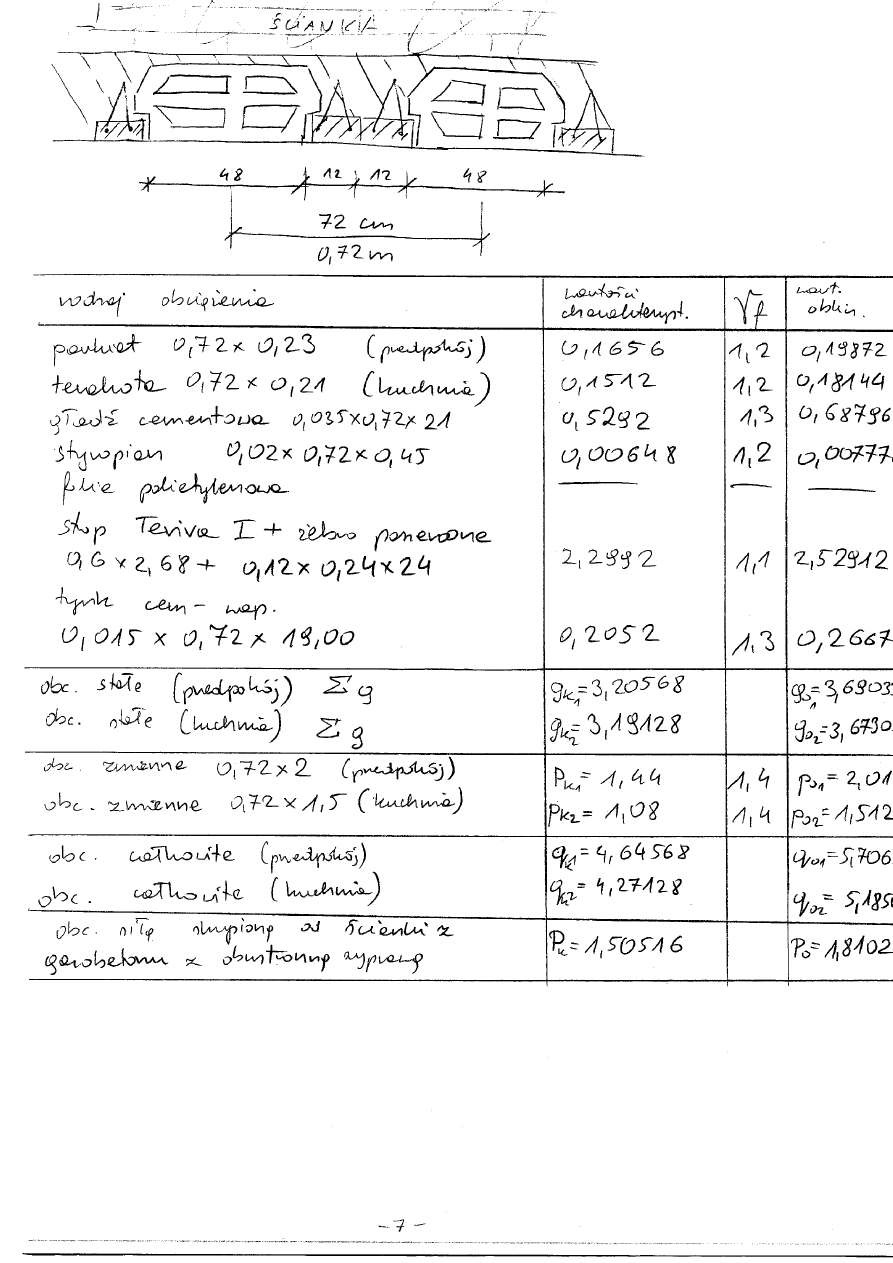 ŚCIANKA
48 12 12 48
72 cm
0,72 m
rodzaj obciążenia wartości charakteryst. γf wart. oblicz.
parkiet 0,72 × 0,23 (przedpokój) 0,1656 1,2 0,19872
terakota 0,72 × 0,21 (kuchnia) 0,1512 1,2 0,18144
gładź cementowa 0,035×0,72×21 0,5292 1,3 0,68796
styropian 0,02× 0,72× 0,45 0,00648 1,2 0,00777
folia polietylenowa — — —
strop Teriva I + żebro ponewone
0,6 × 2,68 + 0,12 × 0,24×24 2,2992 1,1 2,52912
tynk cem - wap.
0,015 × 0,72 × 19,00 0,2052 1,3 0,2667
obc. stałe (przedpokój) Σg gk1=3,20568 go1=3,6903
obc. stałe (kuchnia) Σg gk2=3,19128 go2=3,6730
obc. zmienne 0,72×2 (przedpokój) Pk1= 1,44 1,4 po1= 2,01
obc. zmienne 0,72 × 1,5 (kuchnia) Pk2= 1,08 1,4 po2=1,512
obc. całkowite (przedpokój) qk1= 4,64568 qo1=5,706
obc. całkowite (kuchnia) qk2= 4,27128 qo2= 5,185
obc. siłą skupioną od ścianki z
gazobetonu z obustronną wyprawą Pk=1,50516 Po=1,8102
- 7 -